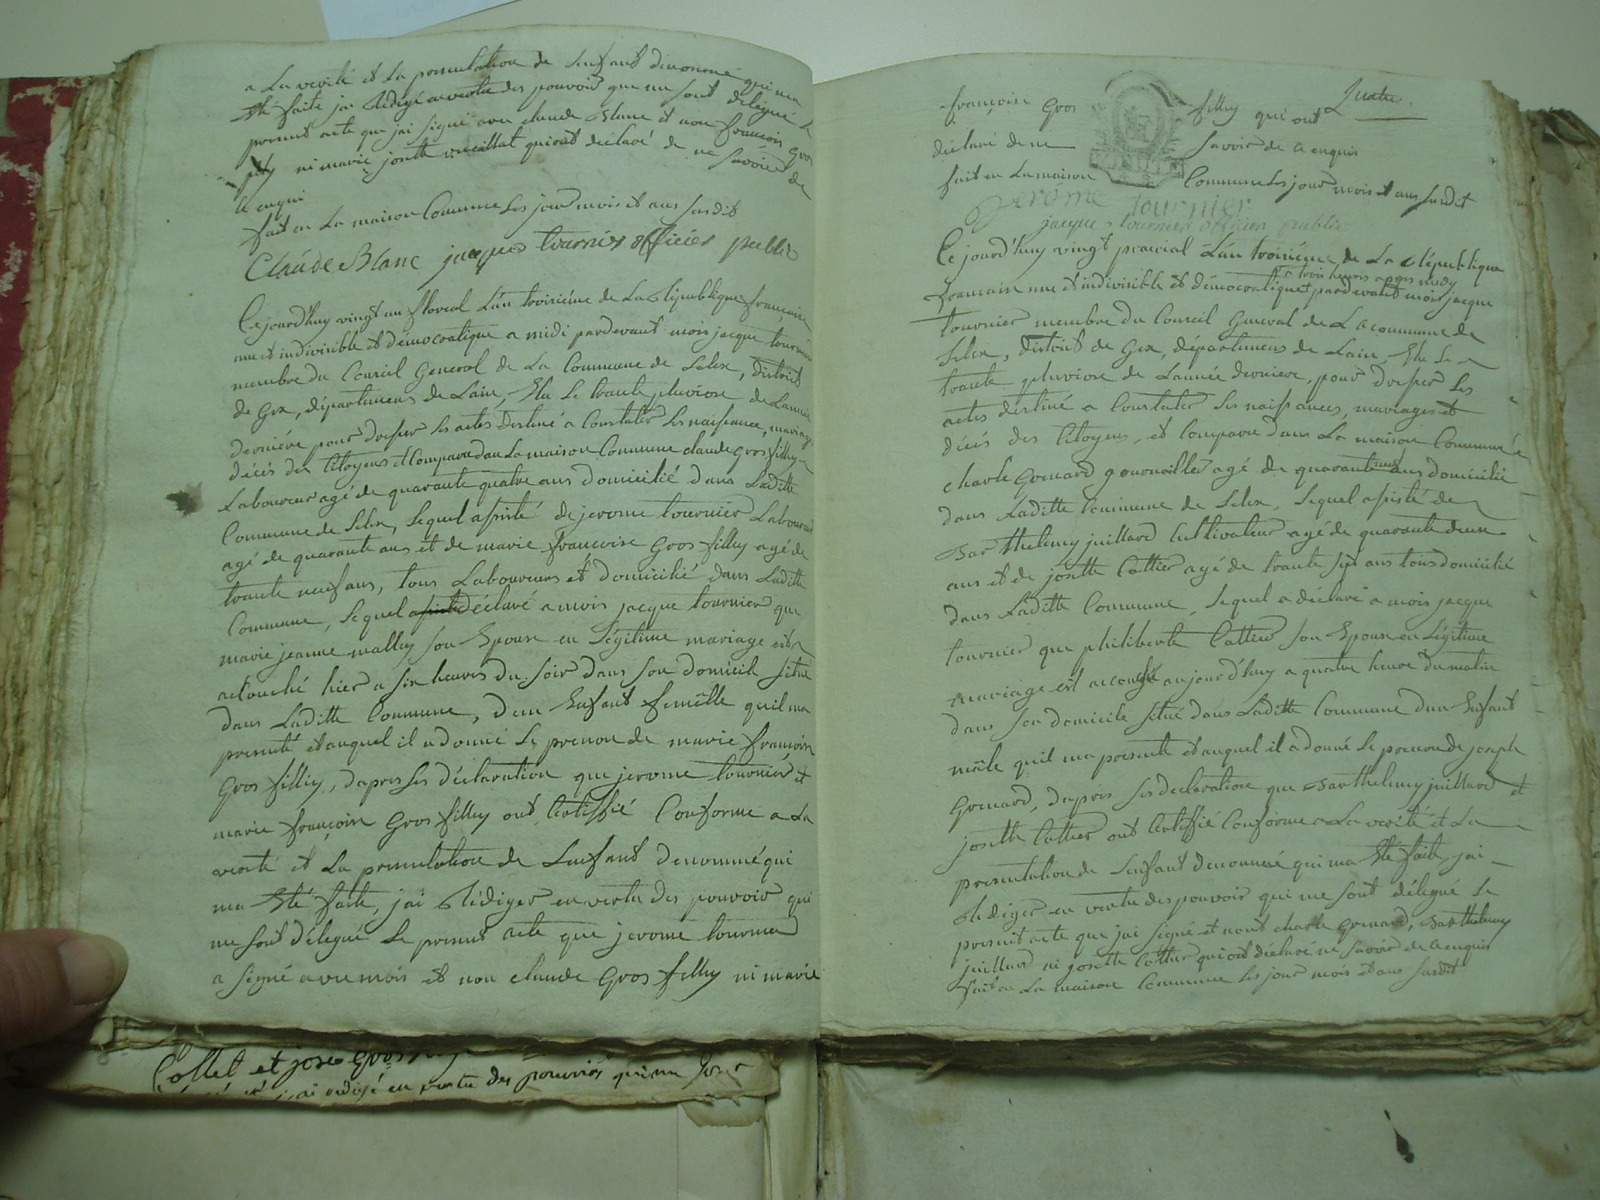 a La verité et La presentation de Lenfant denommé qui ma
Eté faite jai Redigé en vertu des pouvoir que me sont délégué Le
present acte que jai signé avec claude Blanc et non françoise Gros
ni marie josette vuaillat qui ont déclaré de ne savoir de
ce enquis
fait en La maison Commune Les jour mois et ans susdit
Claude Blanc jacque tournier officier public
Cejourd'huy vingt un floreal Lan troisième de La République françoise
une et indivisible et démocratique a midi pardevant mois jacque tournier
membre du Conseil General de La Commune de Lelex, district
de Gex, département de Lain, Elu Le trante pluviose de Lannée
dernière pour dresser Les actes destiné a Constater Les naissance, mariage
décès des Citoyens et Comparu dans La maison Commune claude Gros filley
Laboureur agé de quarante quatre ans domicilié dans Laditte
Commune de Lelex, Lequel assisté de jerome tournier Laboureur
agé de quarante ans et de marie françoise Gros filley agé de
trante neuf ans, tous Laboureurs et domicilié dans Laditte
Commune, Lequel déclaré a mois jacque tournier que
marie jeanne mallay son Epouse en Légitime mariage est
acouché hier a six heures du soir dans son domicile situé
dans Laditte Commune, d'un Enfant femelle quil ma
presenté et auquel il a donné Le prenom de marie françoise
Gros filley, dapres Les déclaration que jerome tournier et
marie françoise Gros filley ont Certiffié Conforme a La
verité et La presentation de Lenfant denommé qui
ma Eté faite, jai Rédiger en vertu des pouvoir qui
me sont délegué Le present acte que jerome tournier
a signé avec mois et non claude Gros filley ni marie
Collet et jose Gros
jai redigé en vertu des pouvoirs qui me sont
Quatre
françoise Gros filley qui ont
déclaré de ne savoir de ce enquis
fait en La maison Commune Les jour mois et ans susdit
Jerome Tournier
jacque tournier officier public
Cejourd'huy vingt prairial Lan troisième de La République
a trois heures apres midy
francaise une et indivisible et démocratique pardevant mois jacque
tournier membre du Conseil General de La commune de
Lelex, district de Gex, département de Lain, Elu Le
trante pluviose de Lannée dernière, pour dresser Les
actes destiné a Constater Les naissances, mariages et
décès des Citoyens, et Comparu dans La maison Commune
charle Grenard agé de quarante neuf ans domicilié
dans Laditte Commune de Lelex, Lequel assisté de
Barthelemy juillard Cultivateur agé de quarante deux
ans et de josette Cattier agé de trante six ans tous domicilié
dans Laditte Commune, Lequel a déclaré a mois jacque
tournier que philiberte Cattier son Epouse en Légitime
mariage est accouché aujourd'huy a quatre heure du matin
dans son domicile situé dans Laditte Commune d'un Enfant
mâle quil ma presenté et auquel il a donné Le prenom de joseph
Grenard, dapres Les déclaration que Barthelemy juillard et
josette Cattier ont Certiffié Conforme a La verité et La
presentation de Lenfant denommé qui ma Eté faite, jai
Rédiger en vertu des pouvoir qui me sont délégué Le
present acte que jai signé et nont charle Grenard, Barthelemy
juillard ni josette Cattier qui ont déclaré ne savoir de ce enquis
fait en La maison Commune Les jour mois et ans susdit